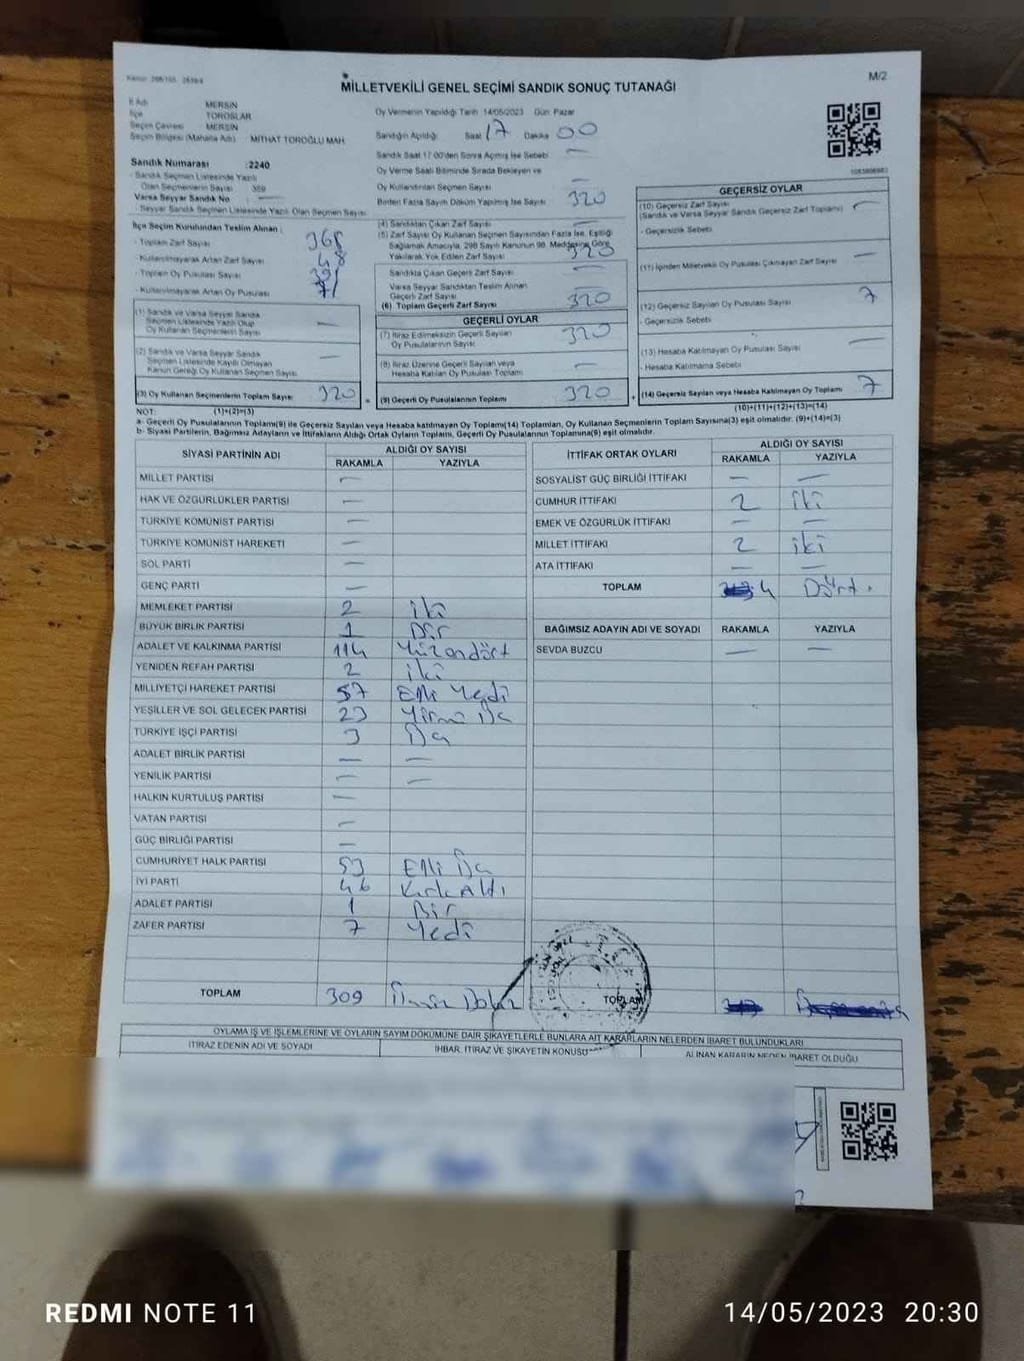 MİLLETVEKİLİ GENEL SEÇİMİ SANDIK SONUÇ TUTANAĞI
M/2
İl Adı MERSİN
İlçe TOROSLAR
Seçim Çevresi MERSİN
Seçim Bölgesi (Mahalle Adı) MİTHAT TOROĞLU MAH.
Oy Vermenin Yapıldığı Tarih 14/05/2023 Gün Pazar
Sandığın Açıldığı Saat 17 Dakika 00
Sandık Saat 17.00'den Sonra Açılmış İse Sebebi —
Oy Verme Saati Bitiminde Sırada Bekleyen ve
Oy Kullandırılan Seçmen Sayısı —
Birden Fazla Sayım Döküm Yapılmış İse Sayısı 320
Sandık Numarası :2240
- Sandık Seçmen Listesinde Yazılı
Olan Seçmenlerin Sayısı 359
Varsa Seyyar Sandık No —
- Seyyar Sandık Seçmen Listesinde Yazılı Olan Seçmen Sayısı
İlçe Seçim Kurulundan Teslim Alınan :
- Toplam Zarf Sayısı 368
- Kullanılmayarak Artan Zarf Sayısı 48
- Toplam Oy Pusulası Sayısı
- Kullanılmayarak Artan Oy Pusulası 71
(1) Sandık ve Varsa Seyyar Sandık
Seçmen Listesinde Yazılı Olup
Oy Kullanan Seçmenlerin Sayısı —
(2) Sandık ve Varsa Seyyar Sandık
Seçmen Listesinde Kayıtlı Olmayan
Kanun Gereği Oy Kullanan Seçmen Sayısı —
(3) Oy Kullanan Seçmenlerin Toplam Sayısı 320
(4) Sandıktan Çıkan Zarf Sayısı
(5) Zarf Sayısı Oy Kullanan Seçmen Sayısından Fazla İse, Eşitliği
Sağlamak Amacıyla, 298 Sayılı Kanunun 98. Maddesine Göre
Yakılarak Yok Edilen Zarf Sayısı 320
Sandıkta Çıkan Geçerli Zarf Sayısı —
Varsa Seyyar Sandıktan Teslim Alınan
Geçerli Zarf Sayısı
(6) Toplam Geçerli Zarf Sayısı 320
GEÇERLİ OYLAR
(7) İtiraz Edilmeksizin Geçerli Sayılan
Oy Pusulalarının Sayısı 320
(8) İtiraz Üzerine Geçerli Sayılan veya
Hesaba Katılan Oy Pusulası Toplamı —
(9) Geçerli Oy Pusulalarının Toplamı 320
GEÇERSİZ OYLAR
(10) Geçersiz Zarf Sayısı —
(Sandık ve Varsa Seyyar Sandık Geçersiz Zarf Toplamı)
- Geçersizlik Sebebi
(11) İçinden Milletvekili Oy Pusulası Çıkmayan Zarf Sayısı —
(12) Geçersiz Sayılan Oy Pusulası Sayısı 7
- Geçersizlik Sebebi
(13) Hesaba Katılmayan Oy Pusulası Sayısı —
- Hesaba Katılmama Sebebi
(14) Geçersiz Sayılan veya Hesaba Katılmayan Oy Toplamı 7
NOT: (1)+(2)=(3) (10)+(11)+(12)+(13)=(14)
a- Geçerli Oy Pusulalarının Toplamı(9) ile Geçersiz Sayılan veya Hesaba katılmayan Oy Toplamı(14) Toplamları, Oy Kullanan Seçmenlerin Toplam Sayısına(3) eşit olmalıdır. (9)+(14)=(3)
b- Siyasi Partilerin, Bağımsız Adayların ve İttifakların Aldığı Ortak Oyların Toplamı, Geçerli Oy Pusulalarının Toplamına(9) eşit olmalıdır.
SİYASİ PARTİNİN ADI ALDIĞI OY SAYISI
RAKAMLA YAZIYLA
MİLLET PARTİSİ —
HAK VE ÖZGÜRLÜKLER PARTİSİ —
TÜRKİYE KOMÜNİST PARTİSİ —
TÜRKİYE KOMÜNİST HAREKETİ —
SOL PARTİ —
GENÇ PARTİ —
MEMLEKET PARTİSİ 2 İki
BÜYÜK BİRLİK PARTİSİ 1 Bir
ADALET VE KALKINMA PARTİSİ 114 Yüzondört
YENİDEN REFAH PARTİSİ 2 iki
MİLLİYETÇİ HAREKET PARTİSİ 57 Elli Yedi
YEŞİLLER VE SOL GELECEK PARTİSİ 23 Yirmi Üç
TÜRKİYE İŞÇİ PARTİSİ 3 Üç
ADALET BİRLİK PARTİSİ — —
YENİLİK PARTİSİ — —
HALKIN KURTULUŞ PARTİSİ —
VATAN PARTİSİ —
GÜÇ BİRLİĞİ PARTİSİ —
CUMHURİYET HALK PARTİSİ 53 Elli Üç
İYİ PARTİ 46 Kırk Altı
ADALET PARTİSİ 1 Bir
ZAFER PARTİSİ 7 Yedi
TOPLAM 309
İTTİFAK ORTAK OYLARI ALDIĞI OY SAYISI
RAKAMLA YAZIYLA
SOSYALİST GÜÇ BİRLİĞİ İTTİFAKI — —
CUMHUR İTTİFAKI 2 İki
EMEK VE ÖZGÜRLÜK İTTİFAKI — —
MİLLET İTTİFAKI 2 iki
ATA İTTİFAKI — —
TOPLAM 4 Dört.
BAĞIMSIZ ADAYIN ADI VE SOYADI RAKAMLA YAZIYLA
SEVDA BUZCU — —
TOPLAM
OYLAMA İŞ VE İŞLEMLERİNE VE OYLARIN SAYIM DÖKÜMÜNE DAİR ŞİKAYETLERLE BUNLARA AİT KARARLARIN NELERDEN İBARET BULUNDUKLARI
İTİRAZ EDENİN ADI VE SOYADI İHBAR, İTİRAZ VE ŞİKAYETİN KONUSU ALINAN KARARIN NEDEN İBARET OLDUĞU
REDMI NOTE 11
14/05/2023 20:30